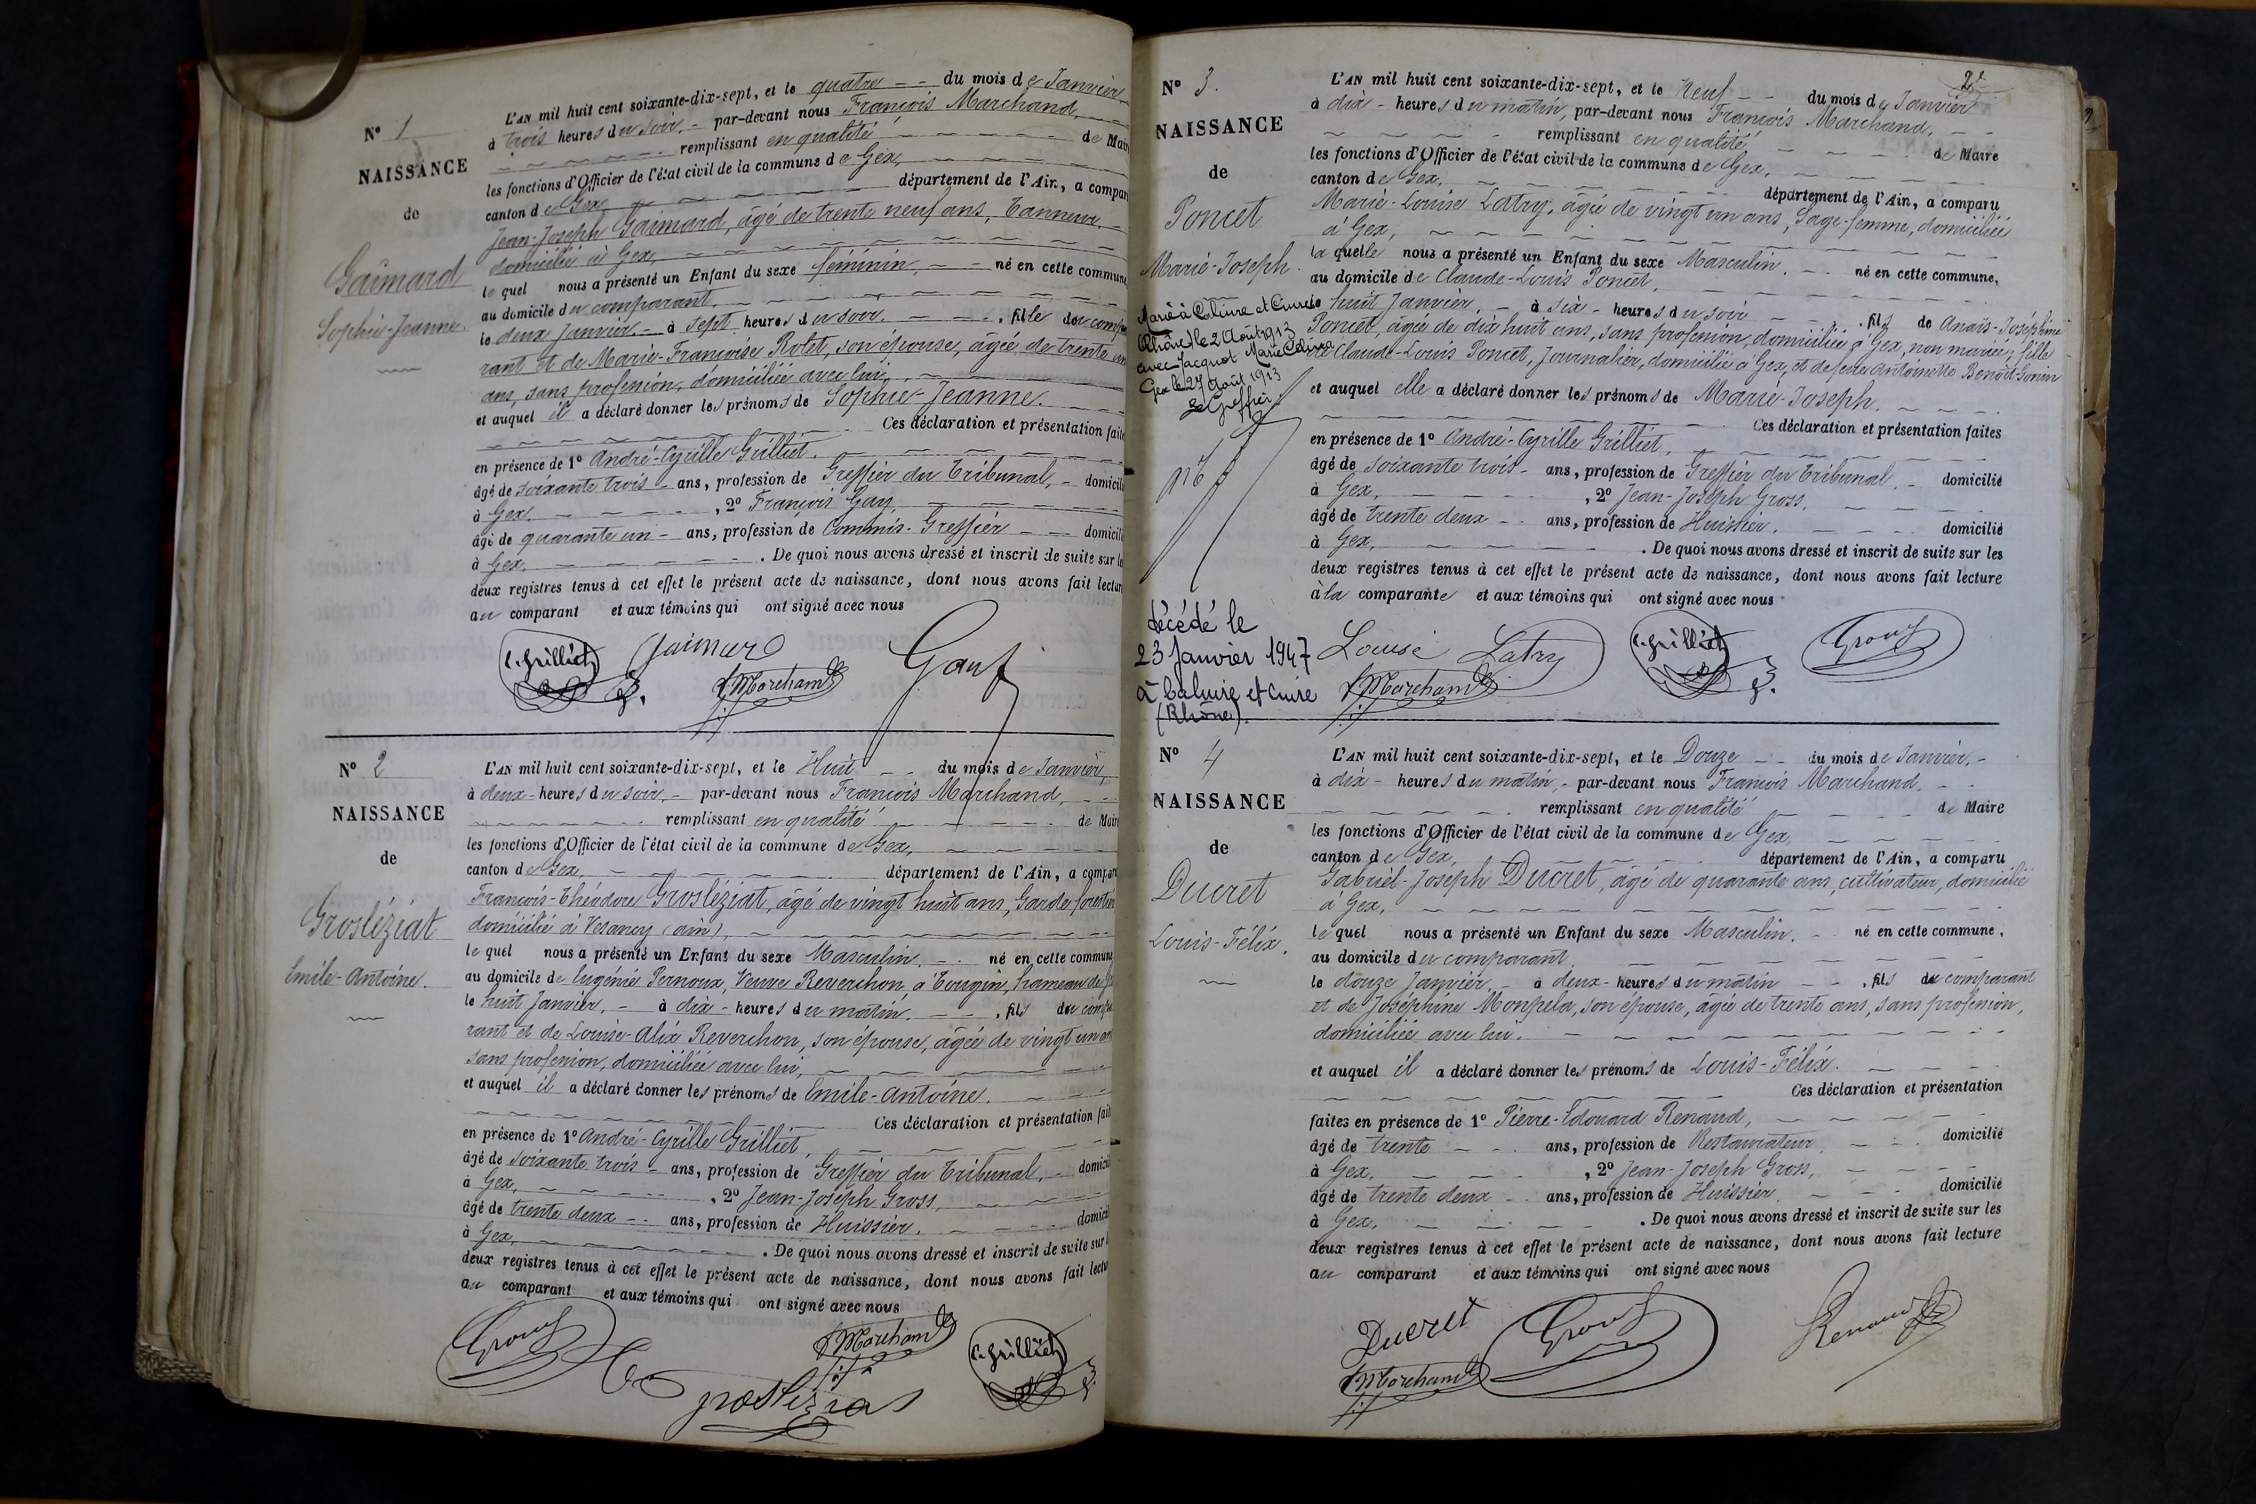 N° 1
NAISSANCE
de
Gaimard
Sophie-Jeanne
L'AN mil huit cent soixante-dix-sept, et le quatre du mois de Janvier
à trois heures du soir, par-devant nous François Marchand,
remplissant en qualité de Maire
les fonctions d'Officier de l'état civil de la commune de Gex,
canton de Gex, département de l'Ain, a compar
Jean-Joseph Gaimard, âgé de trente neuf ans, Tanneur,
domicilié à Gex,
le quel nous a présenté un Enfant du sexe féminin, né en cette commune
au domicile du comparant,
le deux Janvier à sept heures du soir, fille du compa
rant et de Marie-Françoise Rolet, son épouse, âgée de trente un
ans, sans profession, domiciliée avec lui,
et auquel il a déclaré donner les prénoms de Sophie-Jeanne.
Ces déclaration et présentation faite
en présence de 1° André-Cyrille Grilliet,
âgé de soixante trois ans, profession de Greffier du Tribunal, domicili
à Gex, , 2° François Gay,
âgé de quarante un ans, profession de Commis-Greffier domicili
à Gex, . De quoi nous avons dressé et inscrit de suite sur le
deux registres tenus à cet effet le présent acte de naissance, dont nous avons fait lectur
au comparant et aux témoins qui ont signé avec nous
C. Grilliet Gaimard F. Marchand Gay
N° 2
NAISSANCE
de
Grosléziat
Emile-Antoine.
L'AN mil huit cent soixante-dix-sept, et le Huit du mois de Janvier,
à deux heures du soir, par-devant nous François Marchand,
remplissant en qualité de Maire
les fonctions d'Officier de l'état civil de la commune de Gex,
canton de Gex, département de l'Ain, a compar
François-Théodore Grosléziat, âgé de vingt huit ans, Garde forestier
domicilié à Vesancy (ain),
le quel nous a présenté un Enfant du sexe Masculin. né en cette commune
au domicile de Eugénie Pernoux, Veuve Reverchon, à Tougin, hameau de Gex
le huit Janvier, à dix heures du matin. , fils du compa
rant et de Louise-Alix Reverchon, son épouse, âgée de vingt un ans
sans profession, domiciliée avec lui,
et auquel il a déclaré donner les prénoms de Emile-Antoine.
Ces déclaration et présentation fait
en présence de 1° André-Cyrille Grilliet,
âgé de soixante trois ans, profession de Greffier du Tribunal, domicili
à Gex, , 2° Jean-Joseph Gross,
âgé de trente deux ans, profession de Huissier, domicil
à Gex, . De quoi nous avons dressé et inscrit de suite sur l
deux registres tenus à cet effet le présent acte de naissance, dont nous avons fait lectu
au comparant et aux témoins qui ont signé avec nous
Gross F. Marchand C. Grilliet
Grosléziat
2e
N° 3.
NAISSANCE
de
Poncet
Marie-Joseph.
Marié à Caluire et Cuire
(Rhône) le 2 Août 1913
avec Jacquot Marie
Gex le 27 Août 1913
Le Greffier
décédé le
23 Janvier 1947
à Caluire et Cuire
(Rhône).
L'AN mil huit cent soixante-dix-sept, et le Neuf du mois de Janvier
à dix heures du matin, par-devant nous François Marchand,
remplissant en qualité de Maire
les fonctions d'Officier de l'état civil de la commune de Gex,
canton de Gex, département de l'Ain, a comparu
Marie-Louise Latry, âgée de vingt un ans, Sage-femme, domiciliée
à Gex,
la quelle nous a présenté un Enfant du sexe Masculin. né en cette commune,
au domicile de Claude-Louis Poncet,
le huit Janvier, à six heures du soir , fils de Anaïs-Joséphine
Poncet, âgée de dix huit ans, sans profession, domiciliée à Gex, non mariée, fille
de Claude-Louis Poncet, Journalier, domicilié à Gex, et de feue Antoinette Benoit-Gonin
et auquel elle a déclaré donner les prénoms de Marie-Joseph.
Ces déclaration et présentation faites
en présence de 1° André-Cyrille Grilliet,
âgé de soixante trois ans, profession de Greffier du Tribunal domicilié
à Gex, , 2° Jean-Joseph Gross,
âgé de trente deux ans, profession de Huissier, domicilié
à Gex, . De quoi nous avons dressé et inscrit de suite sur les
deux registres tenus à cet effet le présent acte de naissance, dont nous avons fait lecture
à la comparante et aux témoins qui ont signé avec nous
Louise Latry C. Grilliet Gross
F. Marchand
N° 4
NAISSANCE
de
Ducret
Louis-Félix.
L'AN mil huit cent soixante-dix-sept, et le Douze du mois de Janvier,
à dix heures du matin, par-devant nous François Marchand,
remplissant en qualité de Maire
les fonctions d'Officier de l'état civil de la commune de Gex,
canton de Gex, département de l'Ain, a comparu
Gabriel-Joseph Ducret, âgé de quarante ans, cultivateur, domicilié
à Gex,
le quel nous a présenté un Enfant du sexe Masculin. né en cette commune,
au domicile du comparant,
le douze Janvier, à deux heures du matin , fils du comparant
et de Joséphine Monpela, son épouse, âgée de trente ans, sans profession,
domiciliée avec lui.
et auquel il a déclaré donner les prénoms de Louis-Félix.
Ces déclaration et présentation
faites en présence de 1° Pierre-Edouard Renaud,
âgé de trente ans, profession de Restaurateur domicilié
à Gex, , 2° Jean-Joseph Gross,
âgé de trente deux ans, profession de Huissier domicilié
à Gex, . De quoi nous avons dressé et inscrit de suite sur les
deux registres tenus à cet effet le présent acte de naissance, dont nous avons fait lecture
au comparant et aux témoins qui ont signé avec nous
Ducret Gross Renaud
F. Marchand